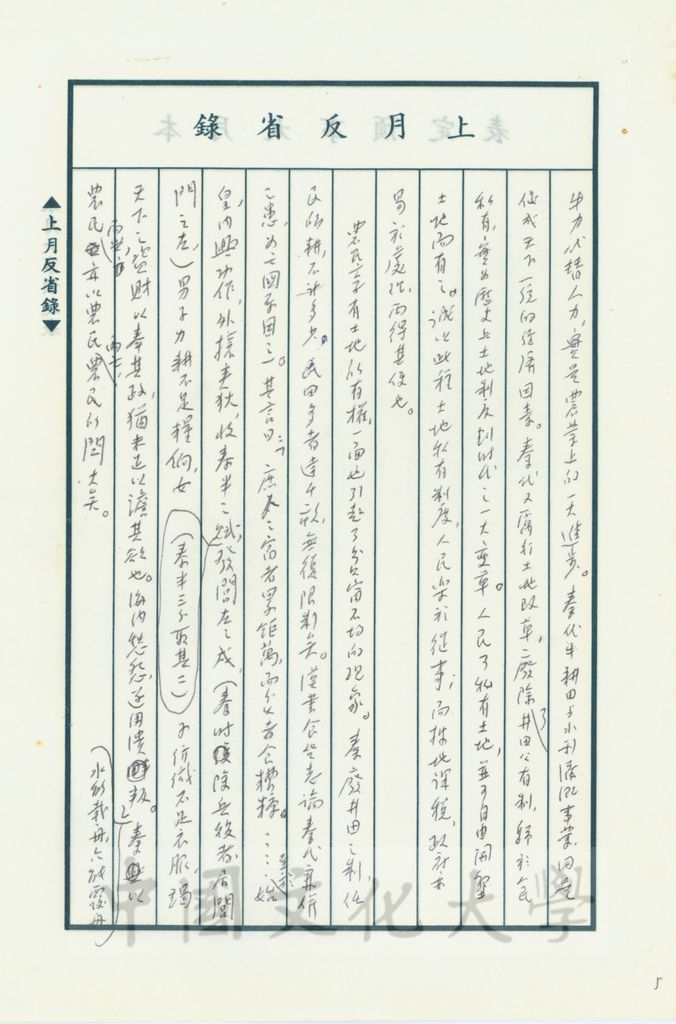 上月反省錄
牛力代替人力，實是農業上的一大進步。秦代牛耕田與水利灌溉事業，同是
促成天下一統的經濟因素。秦代又厲行土地改革，廢除了井田公有制，歸於民
私有，實為歷史上土地制度劃時代之一大變革。人民了私有土地，並可自由開墾
土地而有之。誠以此種土地私有制度，人民樂於從事，而按地課稅，政府亦
易於處理，而得其便也。
農民享有土地所有權，一面也引起了貧富不均的現象。秦廢井田之制，任
民所耕，不計多少，民田多者達千畝，無復限制矣。漢書食貨志論秦代兼併
之患，為亡國原因之一。其言曰：「庶人之富者累鉅萬，而貧者食糟糠。……至於始
皇，內興功作，外攘夷狄，收泰半之賦，發閭左之戍，(秦時復除兵役者，居閭
門之左，)男子力耕不足糧餉，女
(泰半三分取其二)
子紡績不足衣服，竭
天下之資財以奉其政，猶未足以澹其欲也。海內愁怨，遂用潰叛。」秦以
農民而興，亦以農民而亡，農民所關大矣。
上月反省錄
中國文化大學
5